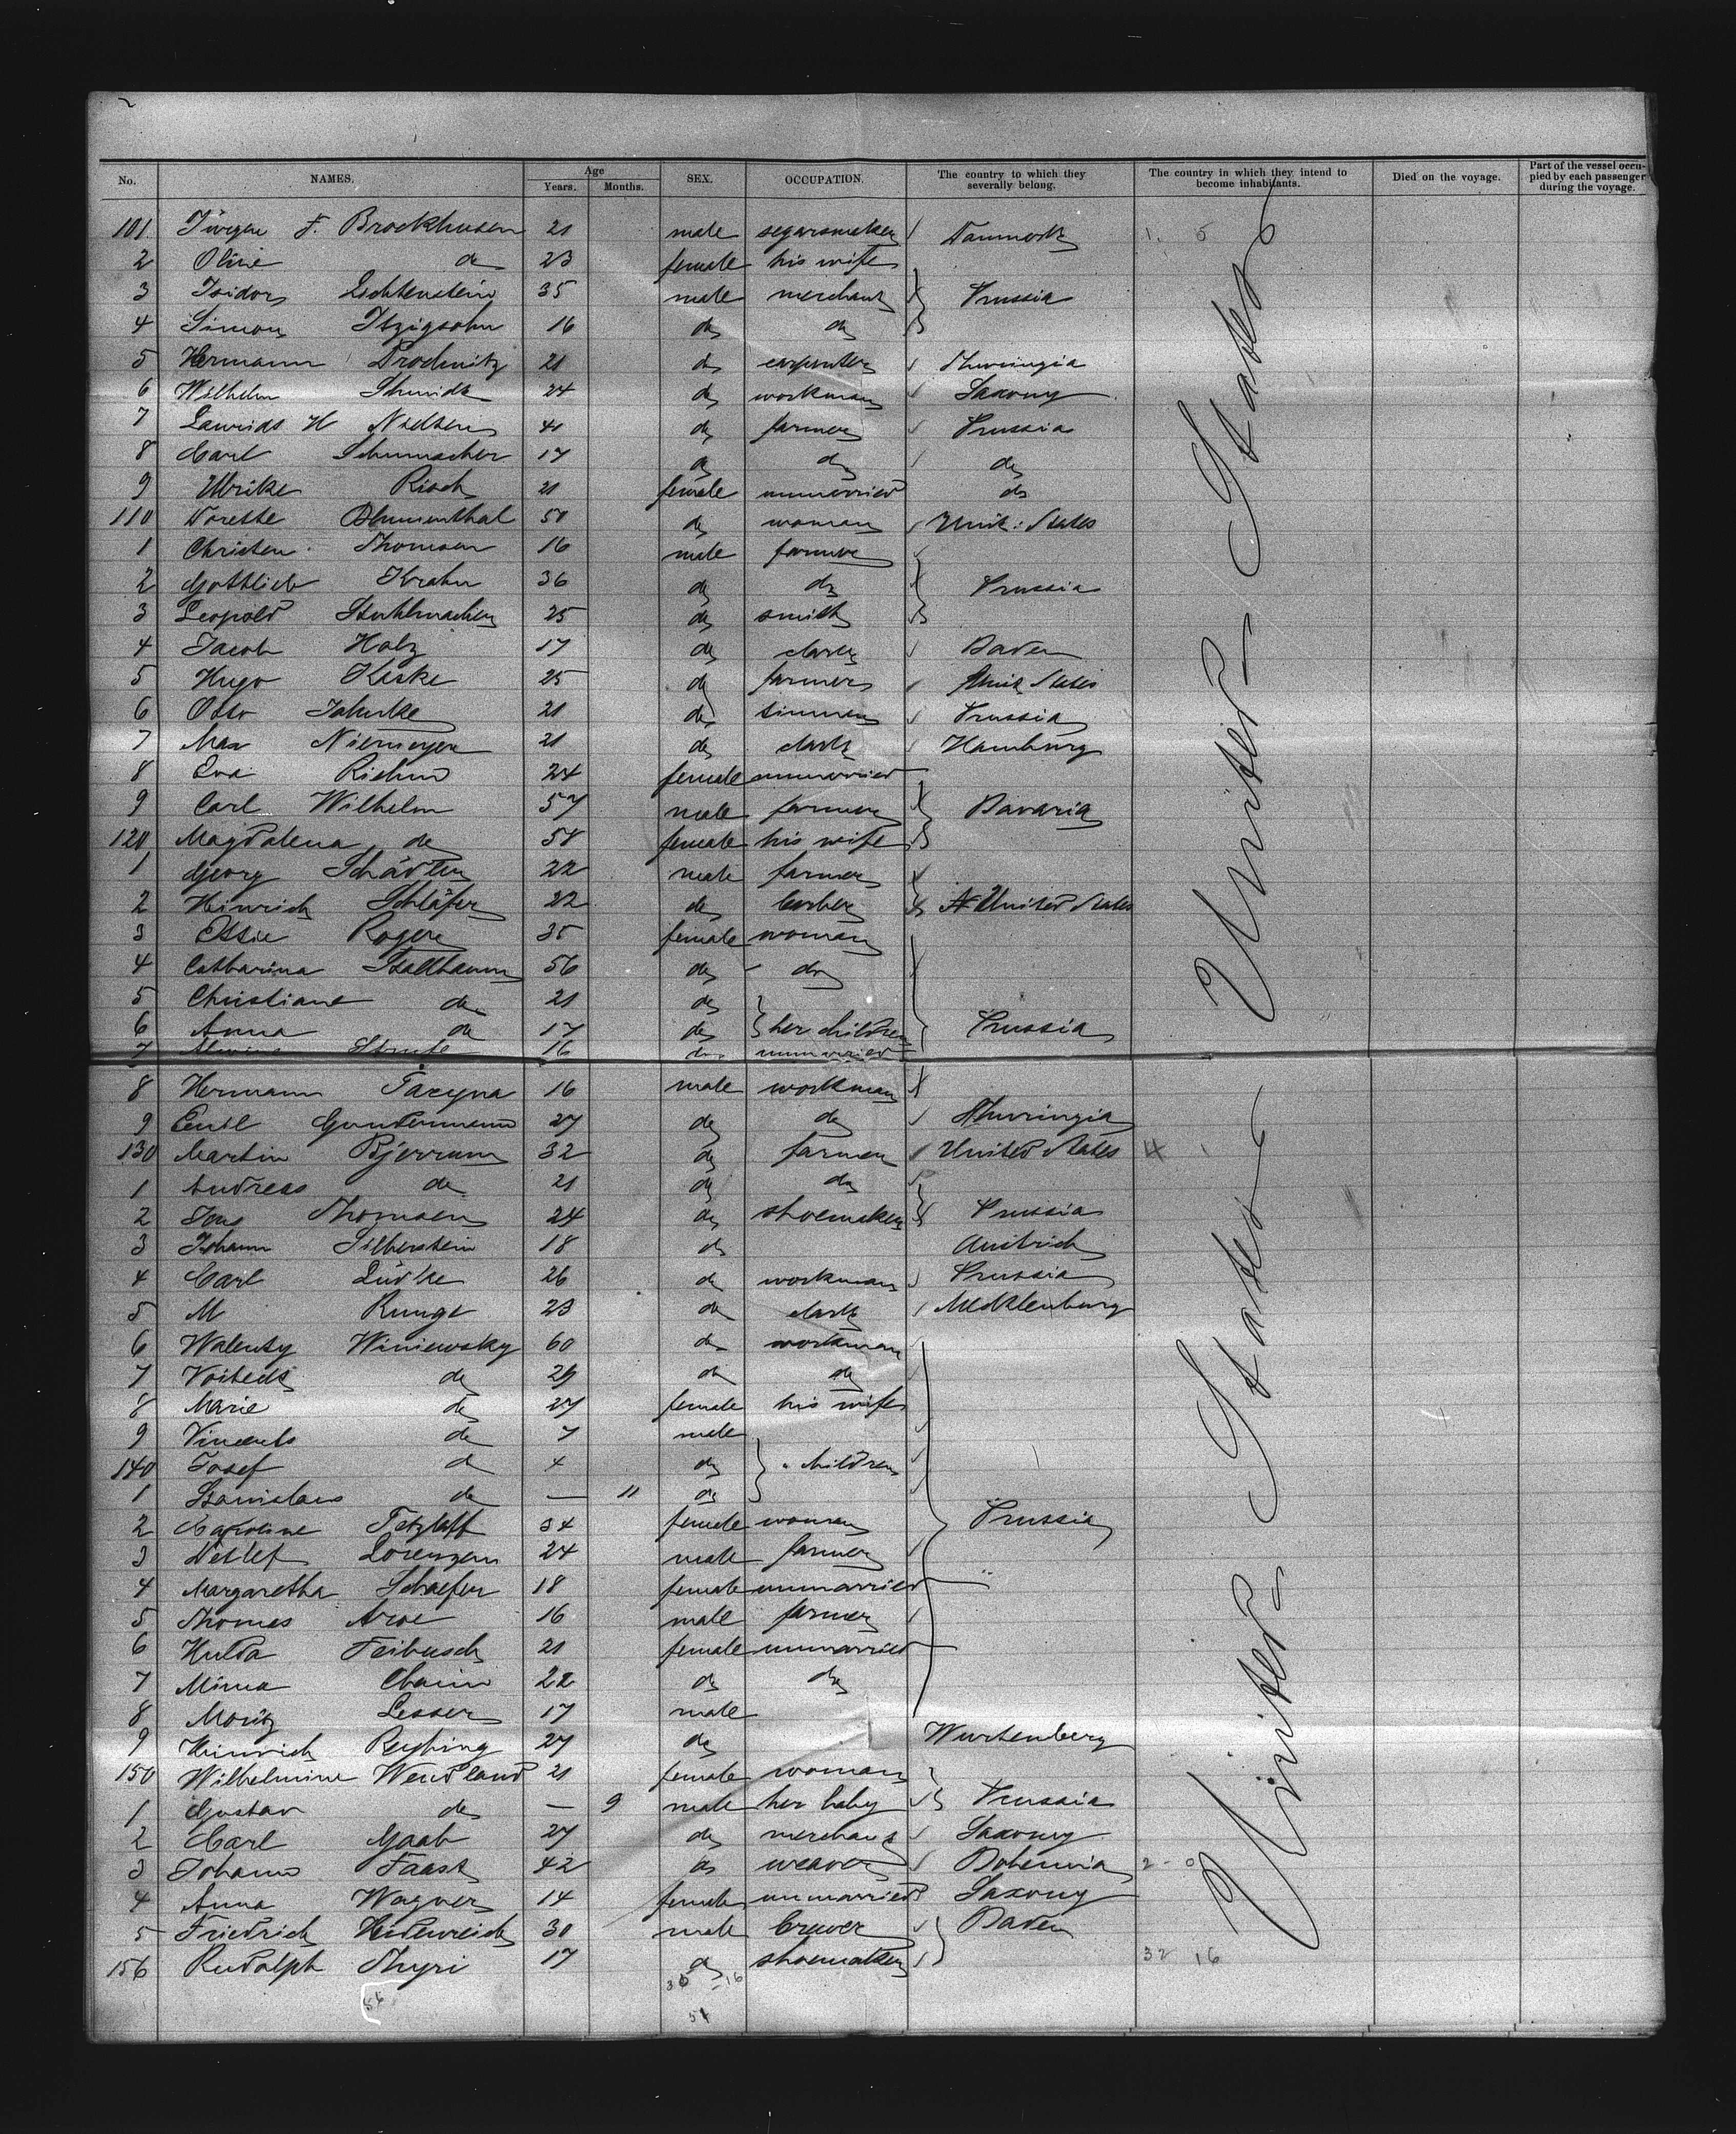 No. NAMES. Age Years. Months. SEX. OCCUPATION. The country to which they severally belong. The country in which they intend to become inhabitants. Died on the voyage. Part of the vessel occupied by each passenger during the voyage.
101 Jürgen F. Brockhusen 21 male segarsmaker Danmark 1. 5
2 Oline do 23 female his wife
3 Isidor Lichtenstein 35 male merchant Prussia
4 Simon Itzigsohn 16 do do
5 Hermann Prochnitz 21 do carpenter Thuringia
6 Wilhelm Shmidt 24 do workman Saxony
7 Laurids H Nielsen 41 do farmer Prussia
8 Carl Schumacher 17 do do do
9 Ulrike Risch 21 female unmarried do
110 Dorette Blumenthal 50 do woman Unit: States
1 Christen Thomsen 16 male farmer
2 Gottlieb Krahn 36 do do Prussia
3 Leopold Stuhlmacher 25 do smith
4 Jacob Holz 17 do clark Baden
5 Hugo Kaske 25 do farmer Unit States
6 Otto Jahnke 21 do Prussia
7 Max Niemeyer 21 do clark Hamburg
8 Eva Riehm 24 female unmarried
9 Carl Wilhelm 57 male farmer Bavaria
120 Magdalena do 58 female his wife
1 Georg 22 male farmer
2 Heinrich Schläfer 22 do barber United States
3 Roger 35 female woman
4 Catharina Stallbaum 56 do do
5 Christiane do 21 do
6 Anna do 17 do her children Prussia
7 16 do unmarried
8 Hermann Pacyna 16 male workman
9 Emil Gundermann 27 do do Thuringia
130 Martin Bjerrum 32 do farmer United States 4 1
1 Andreas do 21 do do
2 Jens Thomsen 24 do shoemaker Prussia
3 Johann Silberstein 18 do Austrich
4 Carl Lüdke 26 do workman Prussia
5 M Runge 23 do clark Mecklenburg
6 Walenty Winiewsky 60 do workman
7 do 29 do do
8 Marie do 27 female his wife
9 Vincents do 7 male
140 Josef do 4 do " children
1 Stanislaus do — 11 do
2 Caroline Tetzlaff 34 female woman Prussia
3 Detlef Lorenzen 24 male farmer
4 Margaretha Schaefer 18 female unmarried
5 Thomas Aroe 16 male farmer
6 Hulda Feibusch 21 female unmarried
7 Minna Chaim 22 do do
8 Moritz Lesser 17 male
9 Heinrich 27 do Wurtenberg
150 Wilhelmine Wendland 21 female woman
1 Gustav do — 9 male her baby Prussia
2 Carl Gaab 27 do merchant Saxony
3 Johann Faast 42 do weaver Bohemia 2 - 0
4 Anna Wagner 14 female unmarried Saxony
5 Friedrich Heidenreich 30 male brewer Baden
156 Rudolph Thyri 17 do shoemaker 32 16
16
56 54
United States
United States